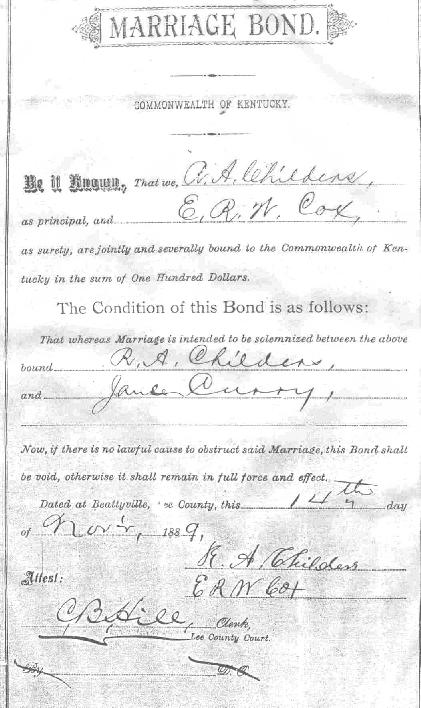 MARRIAGE BOND.
COMMONWEALTH OF KENTUCKY.
Be it Known, That we, R. A. Childers,
as principal, and E. R. W. Cox,
as surety, are jointly and severally bound to the Commonwealth of Ken-
tucky in the sum of One Hundred Dollars.
The Condition of this Bond is as follows:
That whereas Marriage is intended to be solemnized between the above
bound R. A. Childers,
and Curry,
Now, if there is no lawful cause to obstruct said Marriage, this Bond shall
be void, otherwise it shall remain in full force and effect.
Dated at Beattyville, ee County, this 14th day
of Nov'r, 1889,
R. A. Childers
Attest: E R W Cox
C. B. Hill, Clerk,
Lee County Court.
By D. C.